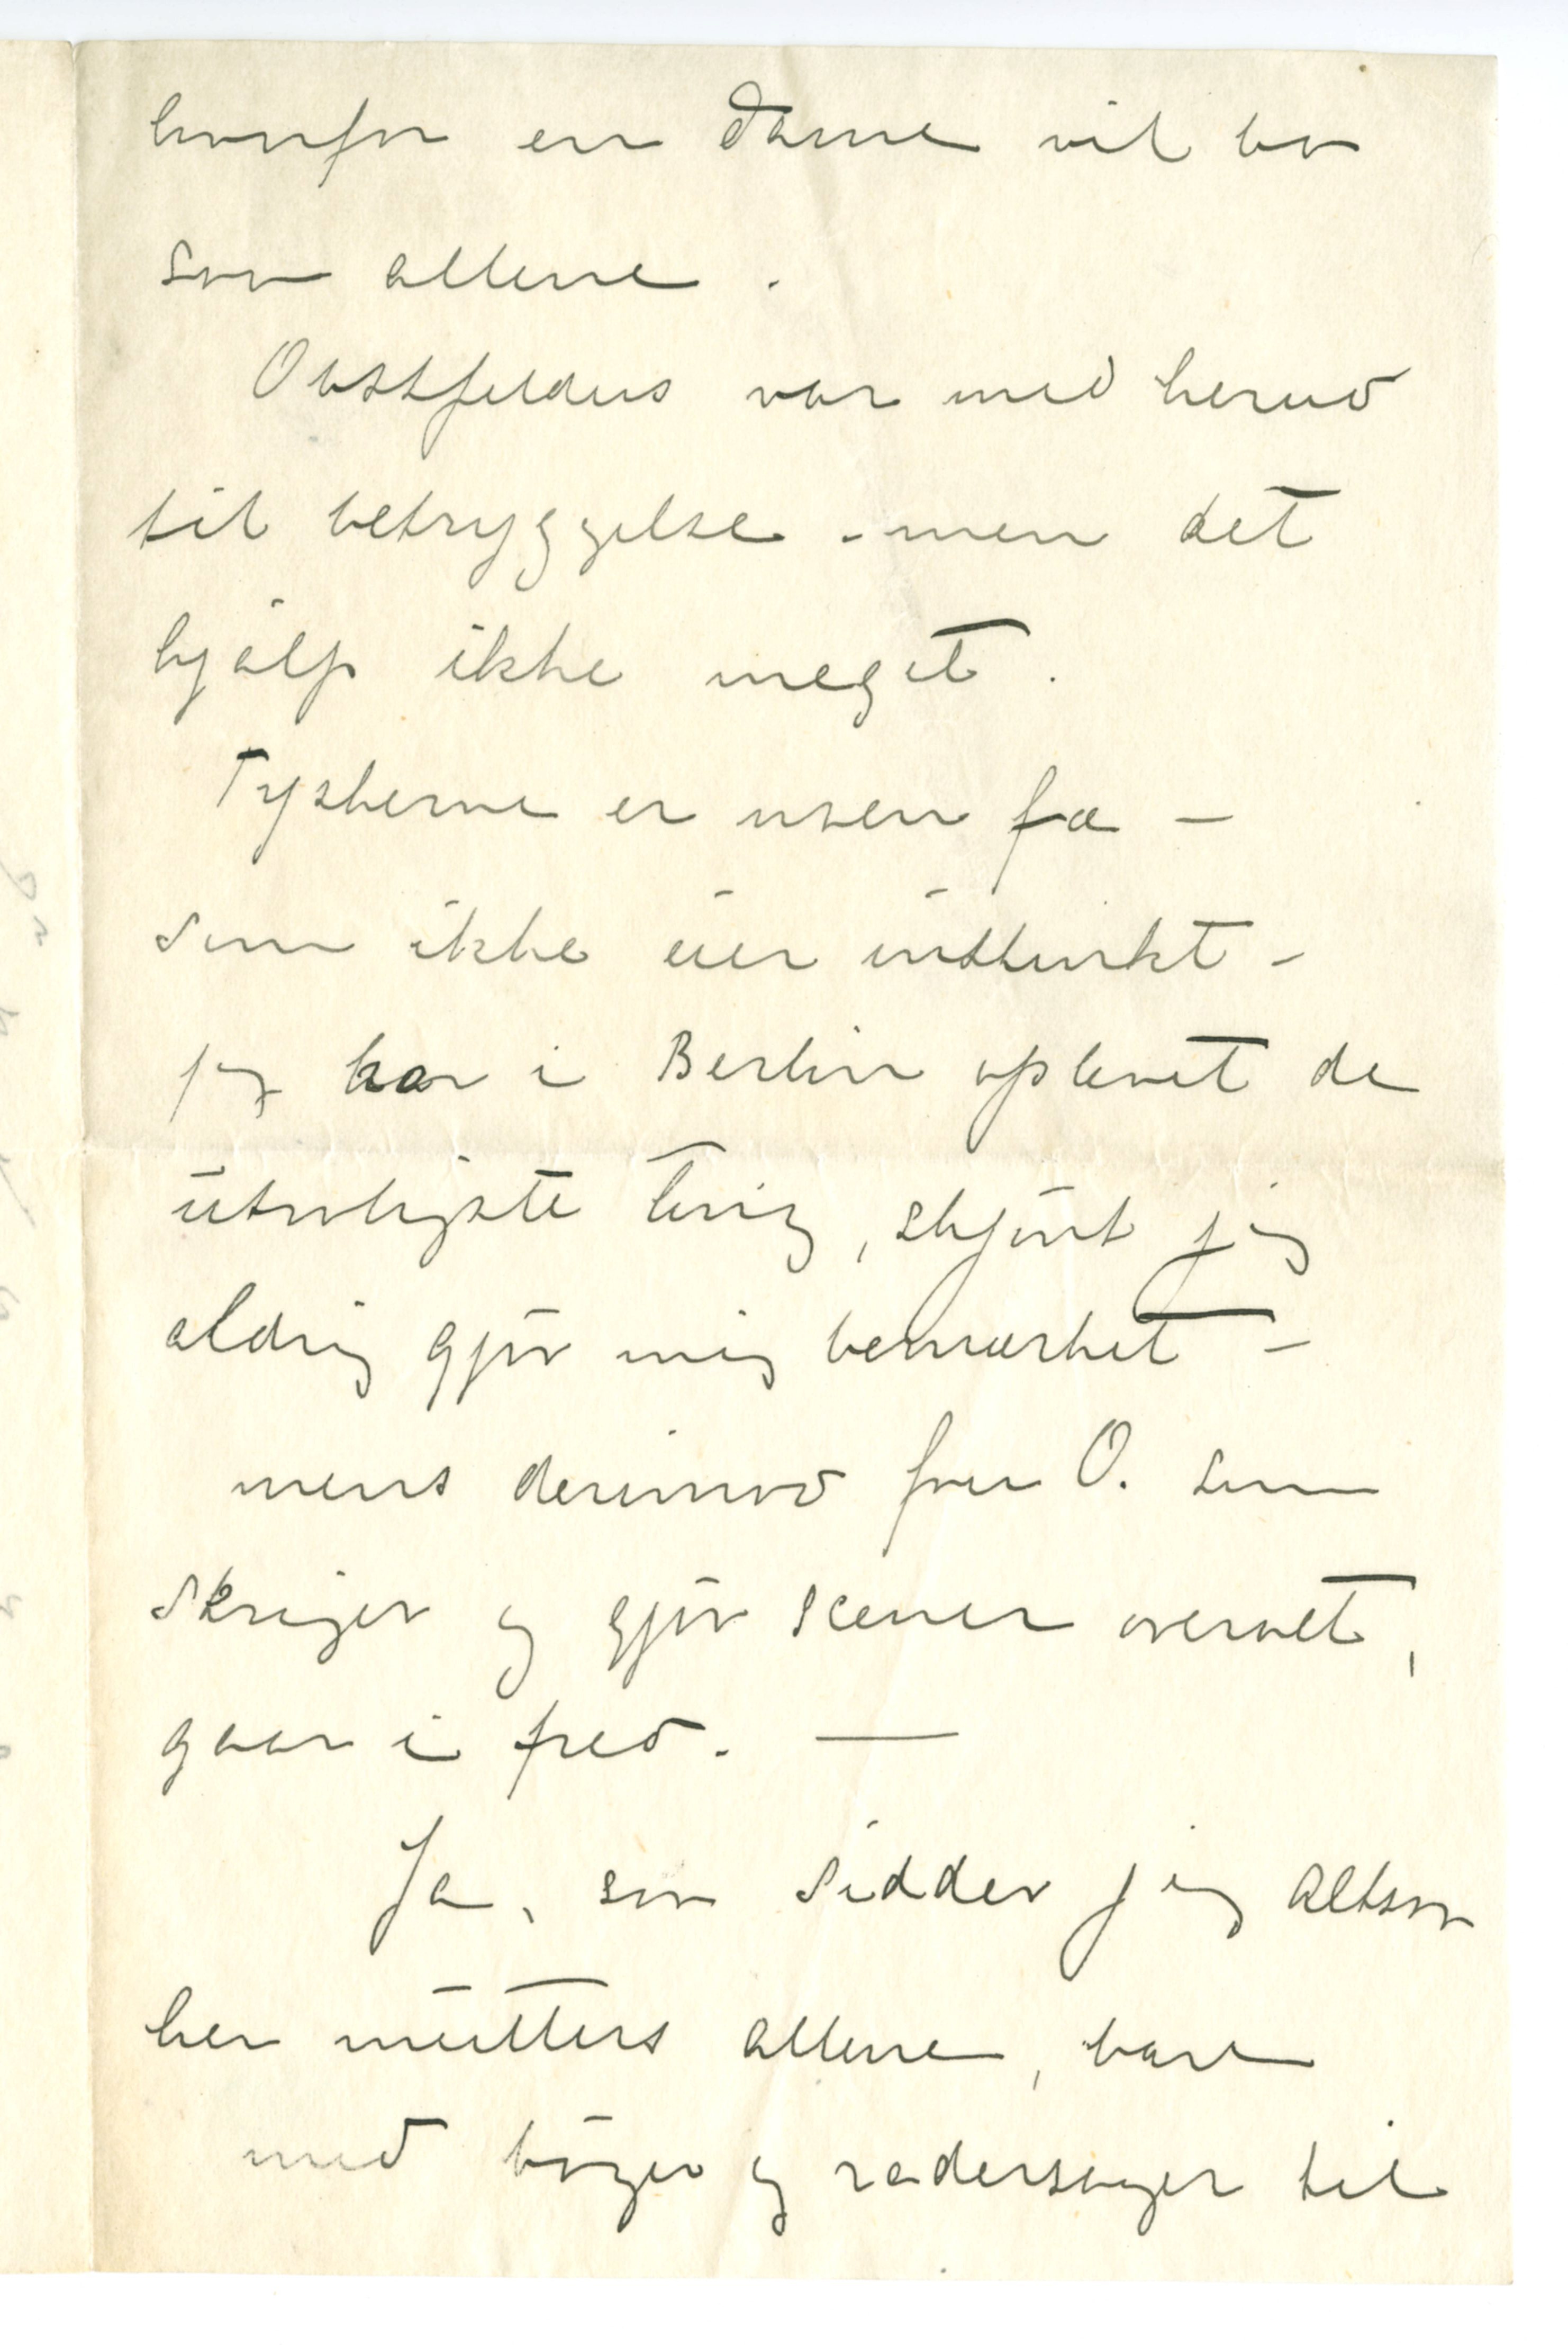 hvorfor en dame vil bo
saa allene.
Obstfelders var med herud
til betryggelse - men det
hjalp ikke meget.
Tyskerne er nogen fæ -
som ikke eier instinkt -
jeg har i Berlin oplevet de
utroligste ting, skjönt jeg
aldrig gjör mig bemærket -
mens derimod fru O. som
skriger og gjör scener overalt,
gaar i fred. —
Ja, saa sidder jeg altsaa
her mutters allene, bare
med böger og radersager til